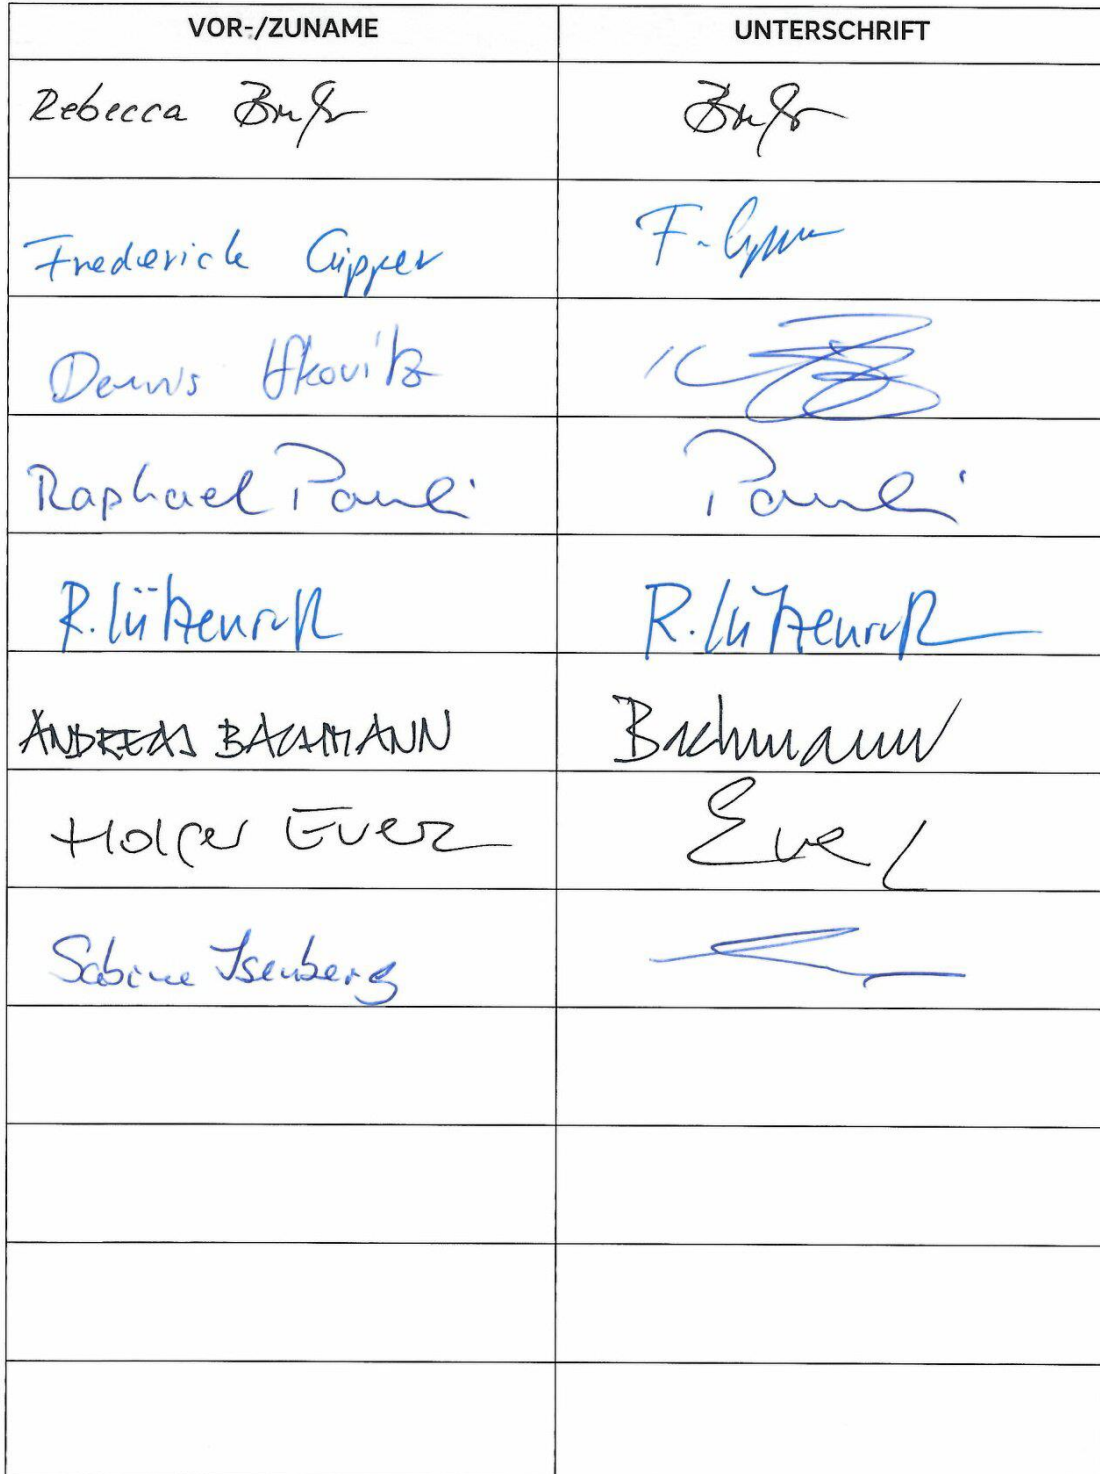 VOR-/ZUNAME UNTERSCHRIFT
Rebecca
Frederick Cüpper F.
Dennis
Raphael Pauli Pauli
R. Lützenrath R. Lützenrath
ANDREAS BACHMANN Bachmann
Holger Everz Ever
Sabine Isenberg